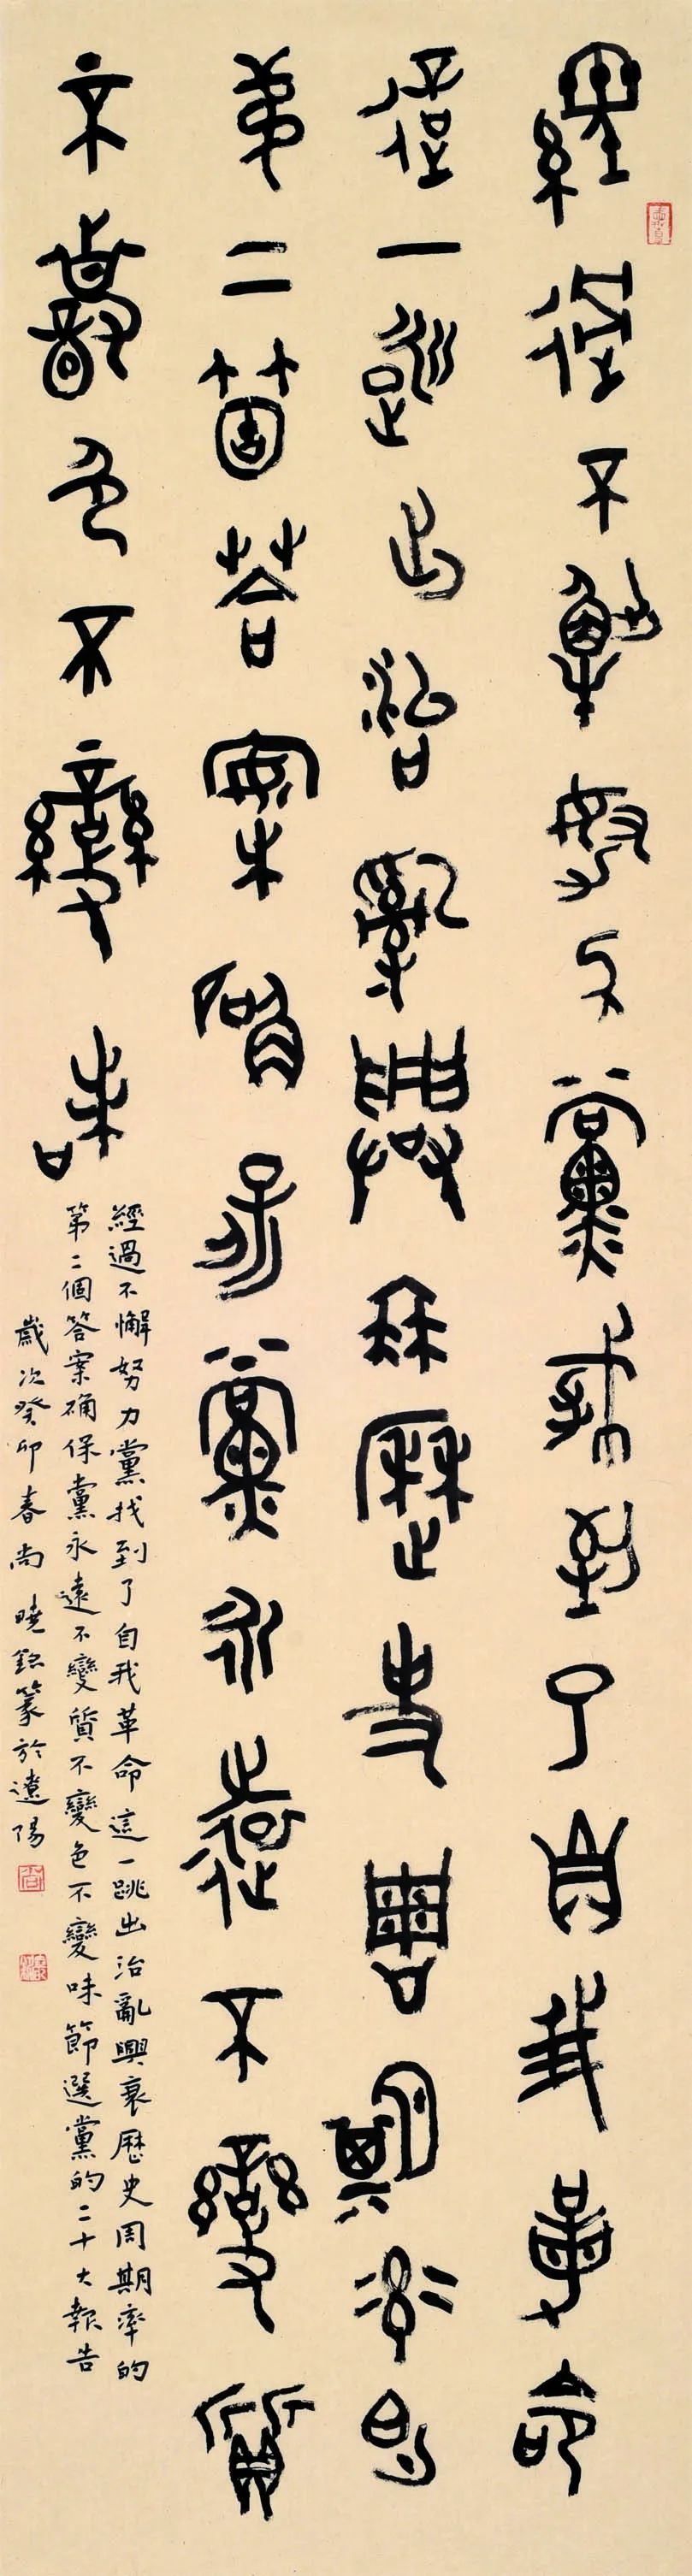 經過不懈努力黨找到了自我革命
這一跳出治亂興衰歷史周期率的
第二箇荅案确保黨永遠不變質
不變色不變味
經過不懈努力黨找到了自我革命這一跳出治亂興衰歷史周期率的
第二個答案确保黨永遠不變質不變色不變味節選黨的二十大報告
歲次癸卯春尚曉篆於遼陽